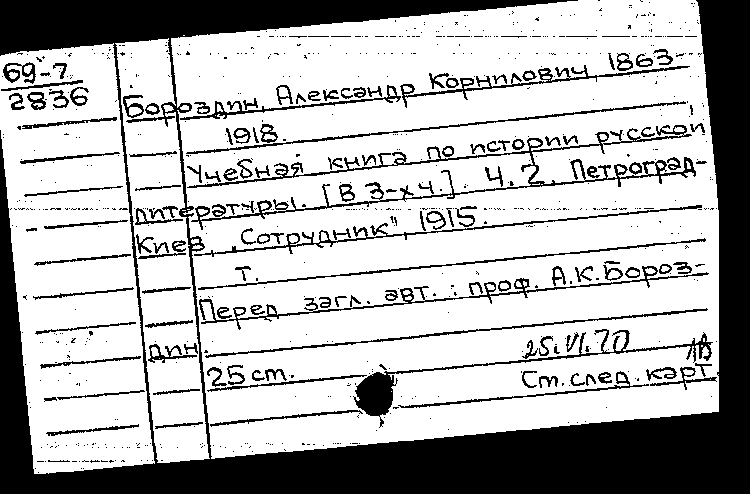 69-7
2836
Бороздин, Александр Корнилович, 1863-
1918.
Учебная книга по истории русской
литературы. [В 3-х ч.]. Ч. 2. Петроград-
Киев, „Сотрудник", 1915.
т.
Перед загл. авт.: проф. А.К. Бороз-
дин.
25.VI.70
25 cm.
См. след. карт.